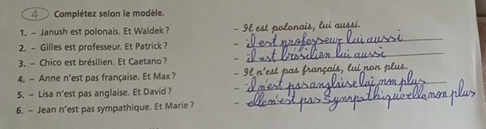 4 Complétez selon le modèle.
1. – Janush est polonais. Et Waldek ? – Il est polonais, lui aussi.
2. – Gilles est professeur. Et Patrick ? – il est professeur lui aussi
3. – Chico est brésilien. Et Caetano ? – il est brésilien lui aussi
4. – Anne n'est pas française. Et Max ? – Il n'est pas français, lui non plus.
5. – Lisa n'est pas anglaise. Et David ? – il n'est pas anglaise lui non plus
6. – Jean n'est pas sympathique. Et Marie ? – elle n'est pas sympathique elle non plus